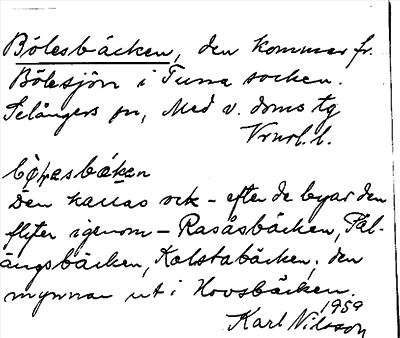 Bölesbäcken, den kommer fr.
Bölesjön i Tuna socken.
Selångers sn, Med v. doms tg
Vrnrl. l.
bø̀ɭesbækan
Den kallas ock – efter de byar den
flyter igenom – Rasåsbäcken, Päl-
ängsbäcken, Kolstabäcken; den
mynnar ut i Hovsbäcken.
1959
Karl Nilsson